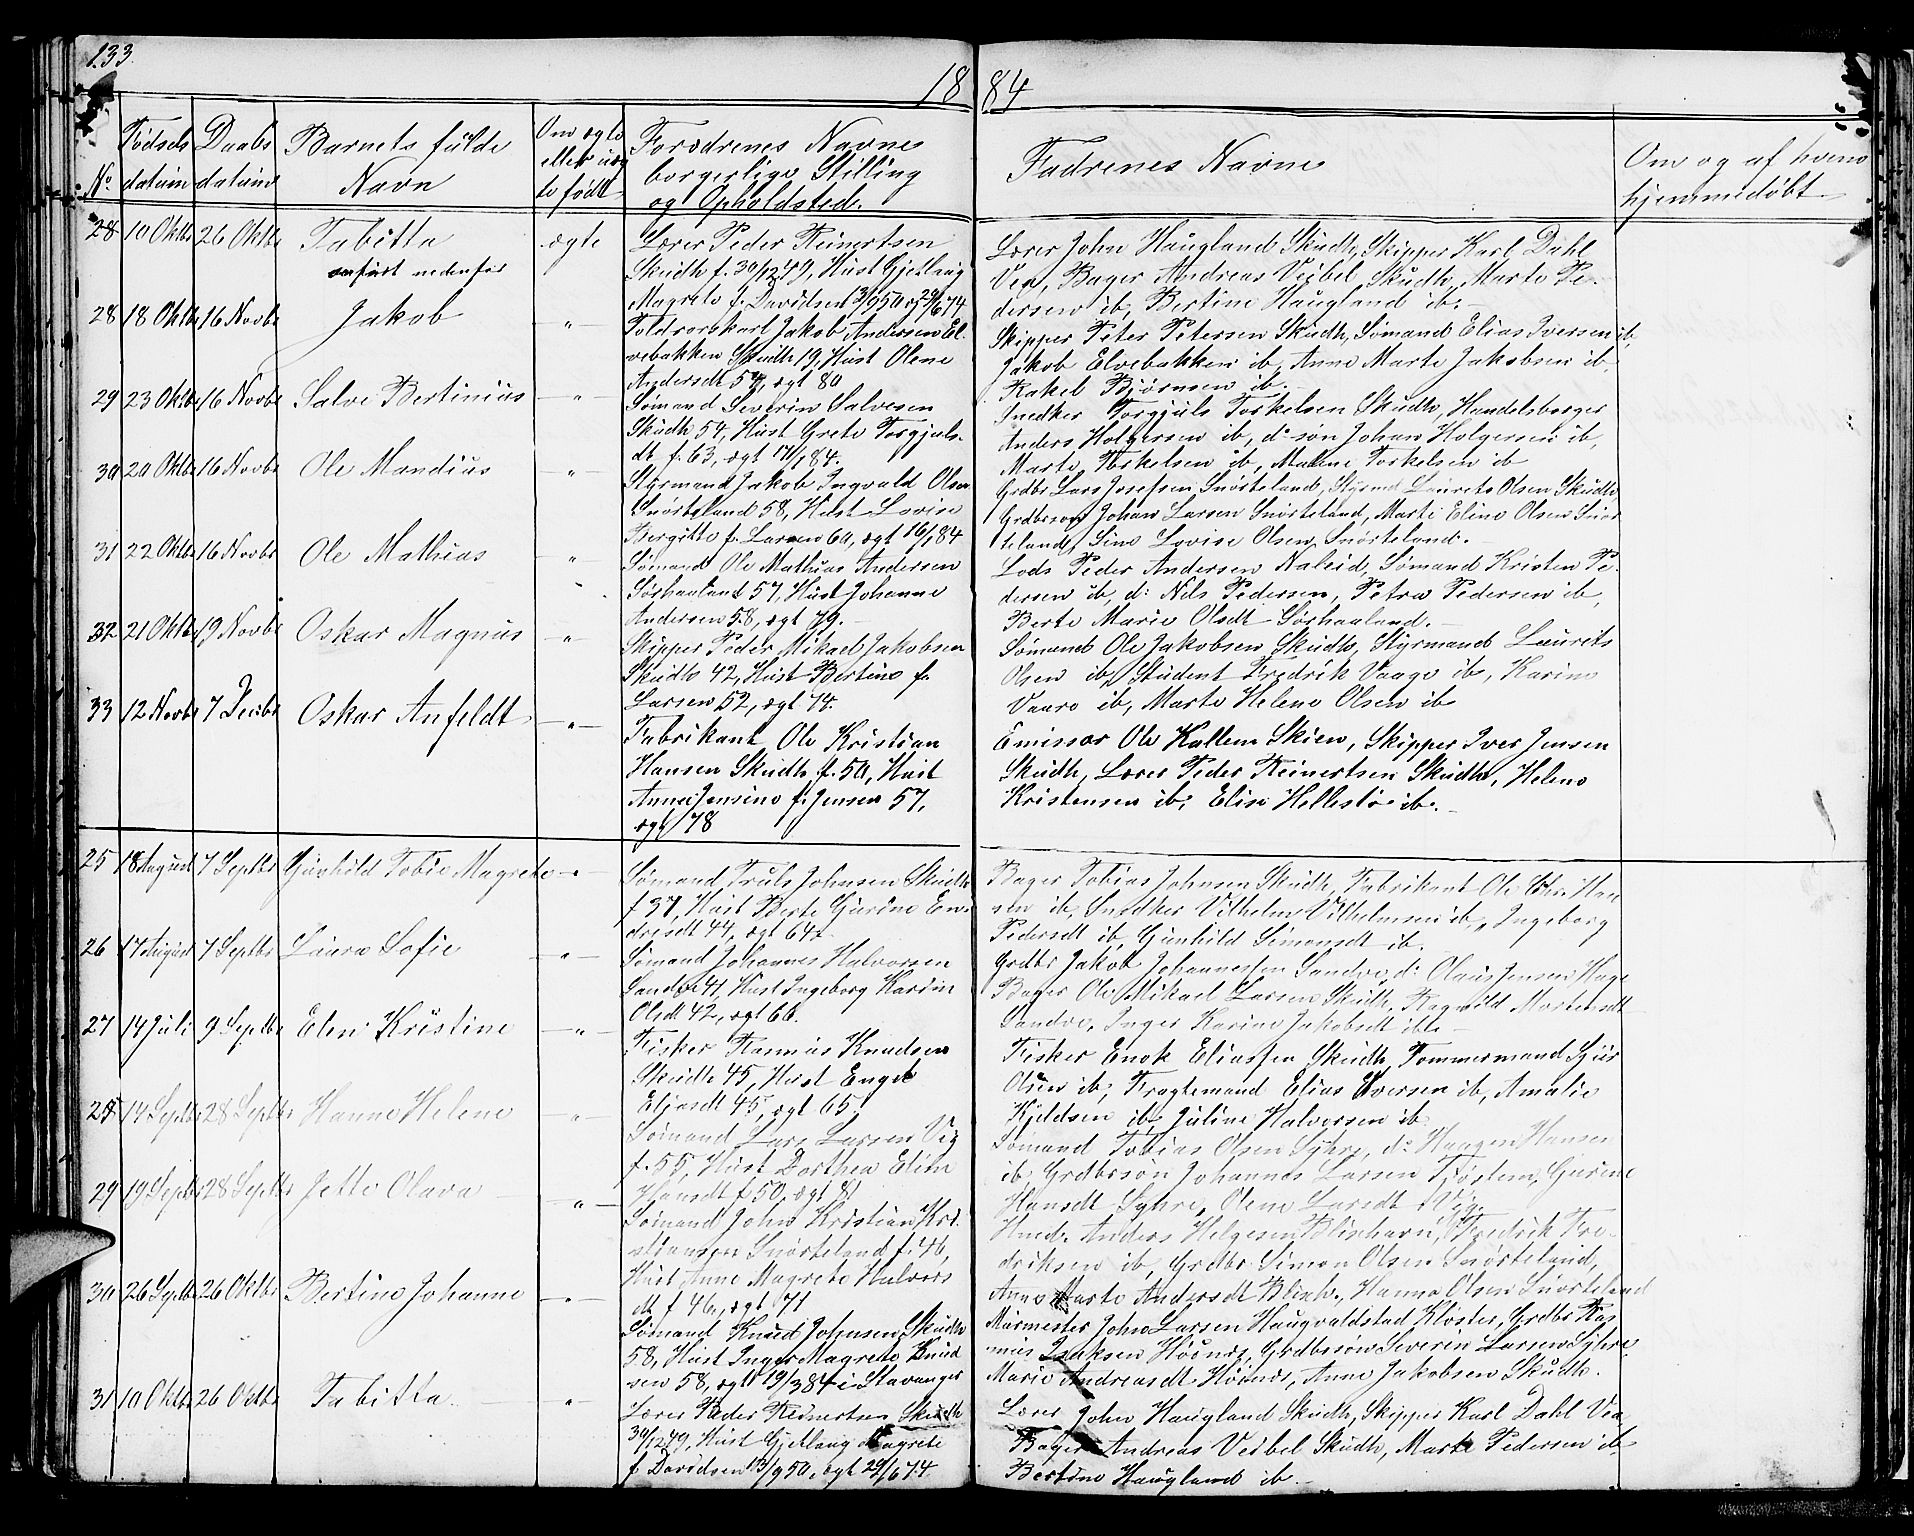 133.
1884
No.
Fødsels datum
Daabs datum
Barnets fulde Navn
Om ægte eller uægte født
Forældrenes Navne borgerlige Stilling og Opholdsted.
Fadrenes Navne
Om og af hvem hjemmedøbt
28 10 Oktbr 26 Oktbr Tabitta ægte
anført nedenfor
Lærer Peder Reinertsen
Skudh f. 30/12 49, Hust Gjetlaug
Magrete f. Davidsen 13/9 50 ægt 29/6 74
Lærer John Haugland Skudh, Skipper Karl Dahl
Vea, Bager Andreas Veibel Skudh, Marte Pe-
dersen ib, Bertine Haugland ib.
28 18 Oktbr 16 Novbr Jakob -"-
Toldrorskarl Jakob Andersen El-
vebakken Skudh 19, Hust Olene
Andersdt 57, ægt 80
Skipper Peter Petersen Skudh, Sømand Elias Iversen ib,
Jakob Elvebakken ib, Anne Marte Jakobsen ib,
Rakel Bjørnsen ib.
29 23 Oktbr 16 Novbr Salve Bertinius -"-
Sømand Severin Salvesen
Skudh 54, Hust Grete Torgjuls-
dt f. 63, ægt 84.
Snedker Torgjuls Torkelsen Skudh, Handelsborger
Anders Holgersen ib, do søn Johan Holgersen ib,
Marte Torkelsen ib, Malene Torkelsen ib
30 20 Oktbr 16 Novbr Ole Mandius -"-
Styrmand Jakob Ingvald Olsen
Snørteland 58, Hust Lovise
Bergitte f. Larsen 60, ægt 16/1 84
Grdbr Lars Josefsen Snørteland, Styrmd Laurets Olsen Skudh,
Grdbrsøn Johan Larsen Snørteland, Marte Eline Olsen Snør-
teland, Sine Lovise Olsen Snørteland.
31 22 Oktbr 16 Novbr Ole Mathias -"-
Sømand Ole Mathias Andersen
Sørhaaland 57, Hust Johanne
Andersen 58, ægt 79.
Lods Peder Andersen Naleid, Sømand Kristen Pe-
dersen ib, do Nils Pedersen, Petra Pedersen ib,
Berte Marie Olsdt Sørhaaland.
32 21 Oktbr 19 Novbr Oskar Magnus -"-
Skipper Peder Mikael Jakobsen
Skudh 42, Hust Bertine f.
Larsen 52, ægt 74.
Sømand Ole Jakobsen Skudh, Styrmand Laurits
Olsen ib, Student Fredrik Vaage ib, Karine
Vaare ib, Marte Helene Olsen ib
33 12 Novbr 7 Decbr Oskar Anfeldt -"-
Fabrikant Ole Kristian
Hansen Skudh f. 50, Hust
Anne Jensine f. Jensen 57,
ægt 78
Emissær Ole Kallem Skien, Skipper Iver Jensen
Skudh, Lærer Peder Reinertsen Skudh, Helene
Kristensen ib, Elise Hellestø ib.
25 18 August 7 Septbr Gunhild Tobie Magrete -"-
Sømand Truls Johnsen Skudh
f 37, Hust Berte Gurine En-
dresdt 44, ægt 64.
Bager Tobias Johnsen Skudh, Fabrikant Ole Chr. Han-
sen ib, Snedker Vilhelm Vilhelmsen ib, Ingeborg
Pedersdt ib, Gunhild Simonsdt ib.
26 17 August 7 Septbr Laura Sofie -"-
Sømand Johannes Halvorsen
Sandve 41, Hust Ingeborg Karine
Olsdt 42, ægt 66.
Grdbr Jakob Johannessen Sandve, do Olaus Jensen Hage
Bager Ole Mikael Larsen Skudh, Ragnild Mortensdt
Sandve, Inger Karine Jakobsdt ib.
27 14 Juli 9 Septbr Elen Kristine -"-
Fisker Rasmus Knudsen
Skudh 45, Hust Engel
Eliasdt 45, ægt 65.
Fisker Enok Eliassen Skudh, Tømmermand Sjur
Olsen ib, Fragtemand Elias Iversen ib, Amalie
Kjeldsen ib, Juline Halvorsen ib
28 14 Septbr 28 Septbr Hanne Helene -"-
Sømand Lars Larsen Vig
f. 55, Hust Dorthea Eline
Hansdt f 50, ægt 81
Sømand Tobias Olsen Syhre, do Haagen Hansen
ib, Grdbrsøn Johannes Larsen Tjøstem, Gurine
Hansdt Syhre, Olene Larsdt Vig.
29 19 Septbr 28 Septbr Jette Olava -"-
Sømand John Kristian Kri-
stiansen Snørteland f. 46,
Hust Anne Magrete Halvors-
dt f 46, ægt 71
Hmd. Anders Helgesen Blixhavn, Fredrik Fre-
driksen ib, Grdbr Simon Olsen Snørteland,
Anne Marte Andersdt Blixh., Hanna Olsen Snørteland
30 26 Septbr 26 Oktbr Bertine Johanne -"-
Sømand Knud Johnsen Skudh
58, Hust Inger Magrete Knud-
sen 58, ægt 19/3 84 i Stavanger
Murmester John Larsen Haugvaldstad Kloster, Grdbr Ras-
mus Isaksen Høines, Grdbrsøn Severin Larsen Syhre
Marie Andreasdt Høines, Anne Jakobsen Skudh.
31 10 Oktbr 26 Oktbr Tabitta -"-
Lærer Peder Reinertsen Skudh
30/12 49, Hust Gjetlaug Magrete
f Davidsen 13/9 50, ægt 29/6 74.
Lærer John Haugland Skudh, Skipper Karl Dahl Vea,
Bager Andreas Veibel Skudh, Marte Pedersen ib
Bertine Haugland ib.